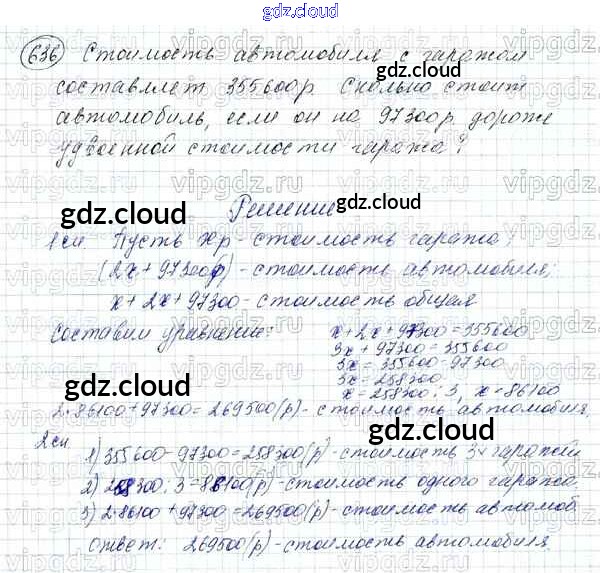 gdz.cloud
636 Стоимость автомобиля с гаражом
составляет 355600р Сколько стоит
автомобиль, если он на 97300р дороже
удвоенной стоимости гаража?
Решение
1сп Пусть хр - стоимость гаража;
(2х+97300р) - стоимость автомобиля;
х+2х+97300 - стоимость общая
Составим уравнение:
х+2х+97300=355600
3х+97300=355600
3х=355600-97300
3х=258300
х=258300:3, х=86100
2·86100+97300=269500(р) - стоимость автомобиля,
2сп
1) 355600-97300=258300(р) - стоимость 3х гаражей
2) 258300:3=86100(р) - стоимость одного гаража.
3) 2·86100+97300=269500(р) - стоимость автомоб
Ответ: 269500(р) - стоимость автомобиля.
gdz.cloud
gdz.cloud
gdz.cloud
gdz.cloud
gdz.cloud
gdz.cloud
gdz.cloud
vipgdz.com